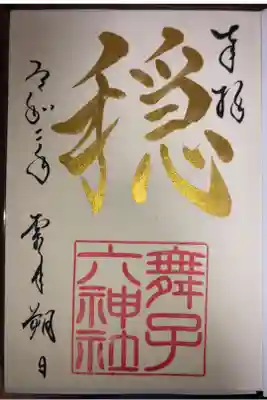 奉拝
穏
舞子
六神社
令和二年 霜月朔日